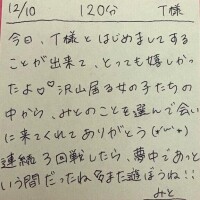 12/10 120分 T様
今日、T様とはじめましてする
ことが出来て、とっても嬉しかっ
たよ♡♡沢山居る女の子たちの
中から、みとのことを選んで会い
に来てくれてありがとう(*˘︶˘*)
連続3回戦したら、夢中であっと
いう間だったねまた遊ぼうね!!
みと